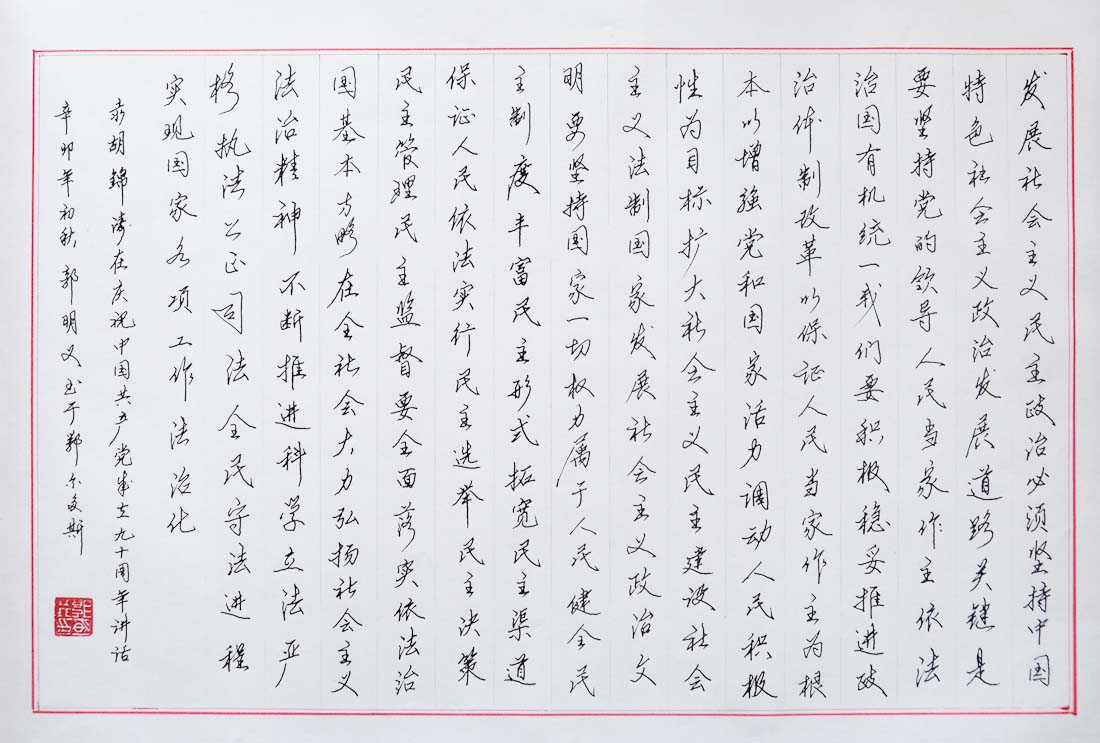 发展社会主义民主政治必须坚持中国
特色社会主义政治发展道路关键是
要坚持党的领导人民当家作主依法
治国有机统一我们要积极稳妥推进政
治体制改革以保证人民当家作主为根
本以增强党和国家活力调动人民积极
性为目标扩大社会主义民主建设社会
主义法制国家发展社会主义政治文
明要坚持国家一切权力属于人民健全民
主制度丰富民主形式拓宽民主渠道
保证人民依法实行民主选举民主决策
民主管理民主监督要全面落实依法治
国基本方略在全社会大力弘扬社会主义
法治精神不断推进科学立法严
格执法公正司法全民守法进程
实现国家各项工作法治化
录胡锦涛在庆祝中国共产党成立九十周年讲话
辛卯年初秋郭明义书于鄂尔多斯